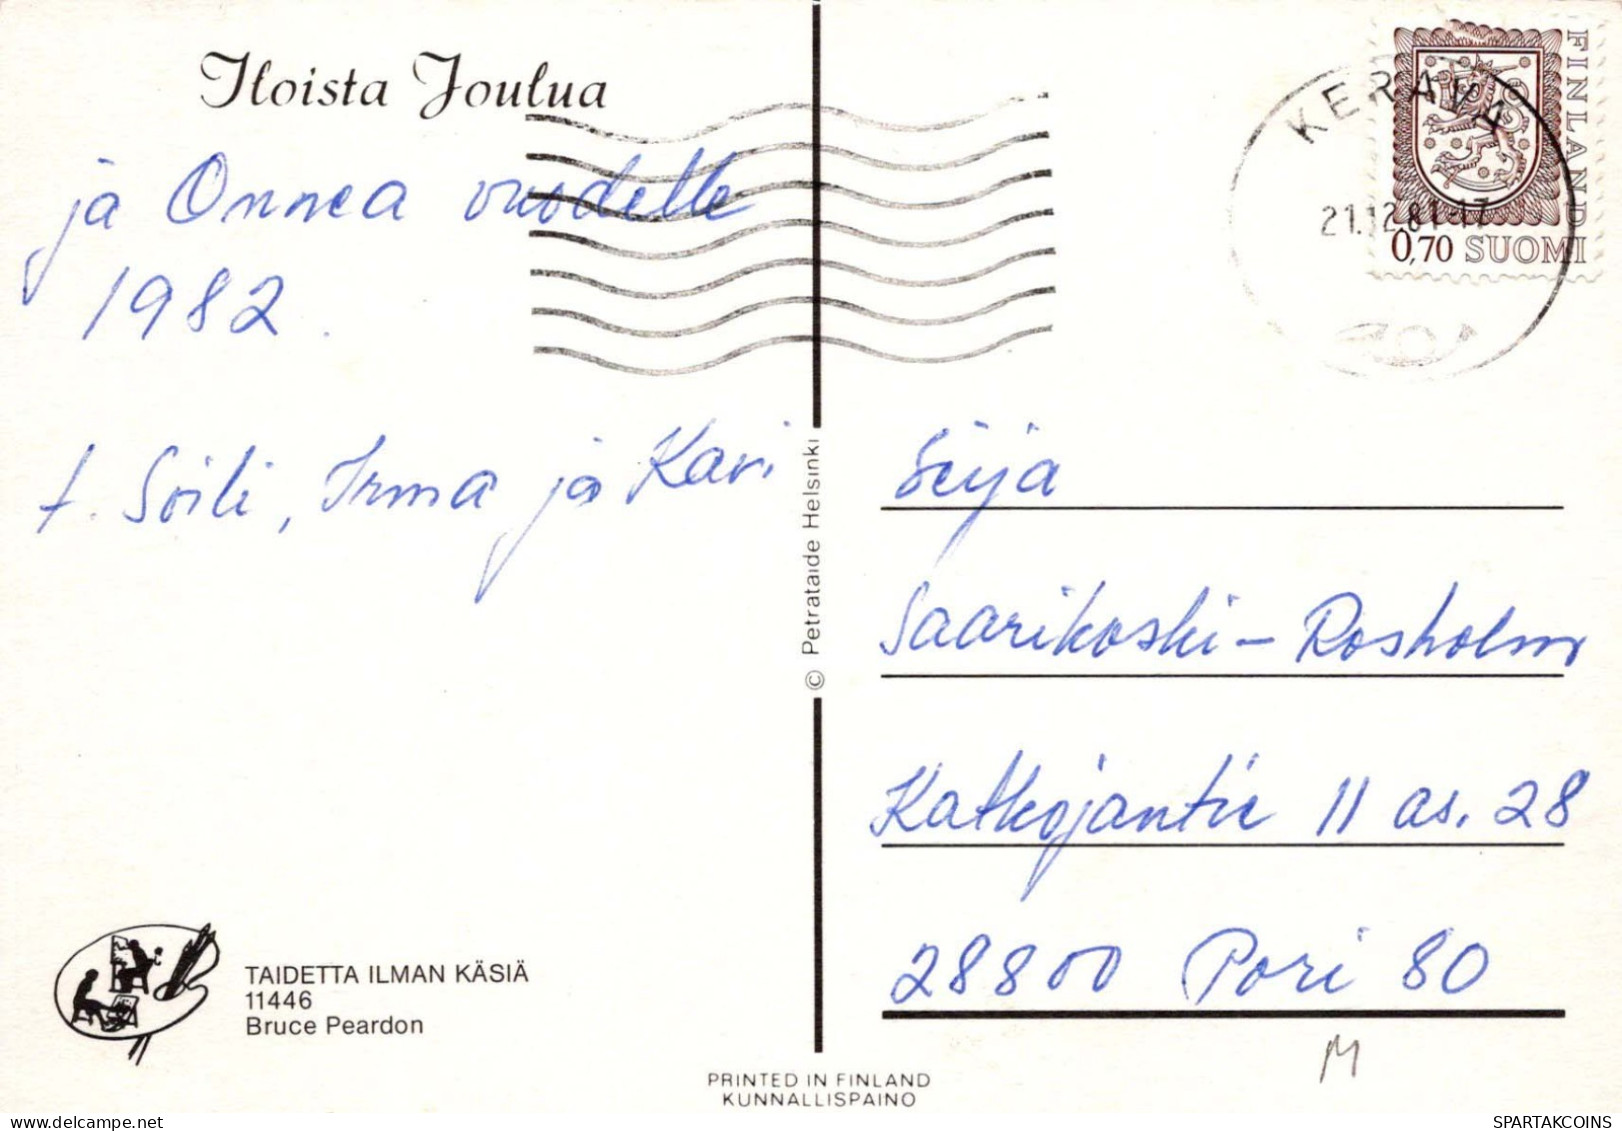 Iloista Joulua
ja Onnea vuodelle
1982.
t. Soili, Irma ja Kari
TAIDETTA ILMAN KÄSIÄ
11446
Bruce Peardon
© Petrataide Helsinki
PRINTED IN FINLAND
KUNNALLISPAINO
KERAVA
21.12.81-17
FINLAND
0,70 SUOMI
Seija
Saarikoski-Rosholm
Katkojantie 11 as. 28
28800 Pori 80
M
SPARTAKCOINS